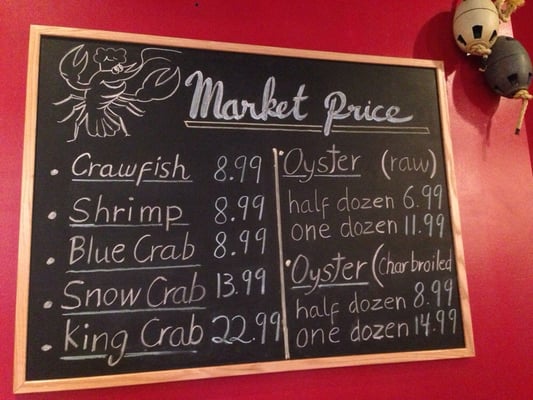 Market Price
• Crawfish 8.99
• Shrimp 8.99
• Blue Crab 8.99
• Snow Crab 13.99
• King Crab 22.99
• Oyster (raw)
half dozen 6.99
one dozen 11.99
• Oyster (Charbroiled
half dozen 8.99
one dozen 14.99